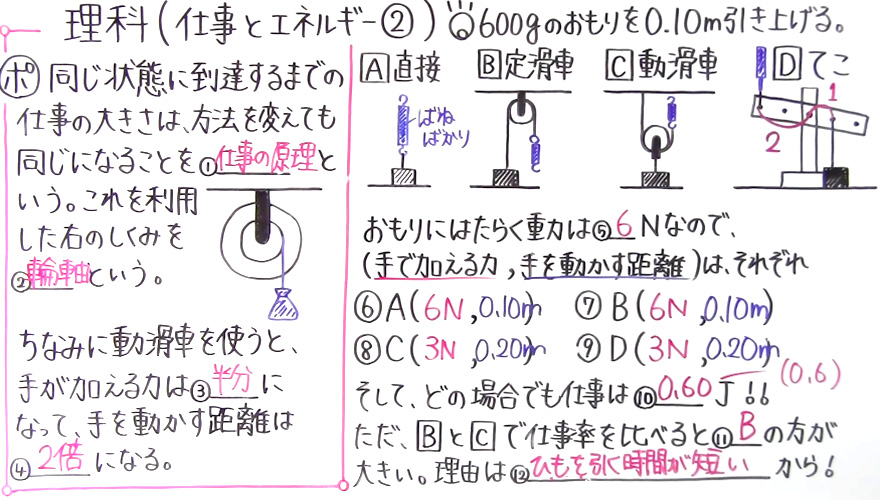 理科(仕事とエネルギー②)
600gのおもりを0.10m引き上げる。
ポ 同じ状態に到達するまでの
仕事の大きさは、方法を変えても
同じになることを①仕事の原理と
いう。これを利用
した右のしくみを
②輪軸という。
ちなみに動滑車を使うと、
手が加える力は③半分に
なって、手を動かす距離は
④2倍になる。
A直接 B定滑車 C動滑車 Dてこ
ばね
ばかり
1
2
おもりにはたらく重力は⑤6Nなので、
(手で加える力,手を動かす距離)は、それぞれ
⑥A(6N,0.10m) ⑦B(6N,0.10m)
⑧C(3N,0.20m) ⑨D(3N,0.20m)
そして、どの場合でも仕事は⑩0.60J!! (0.6)
ただ、BとCで仕事率を比べると⑪Bの方が
大きい。理由は⑫ひもを引く時間が短いから!